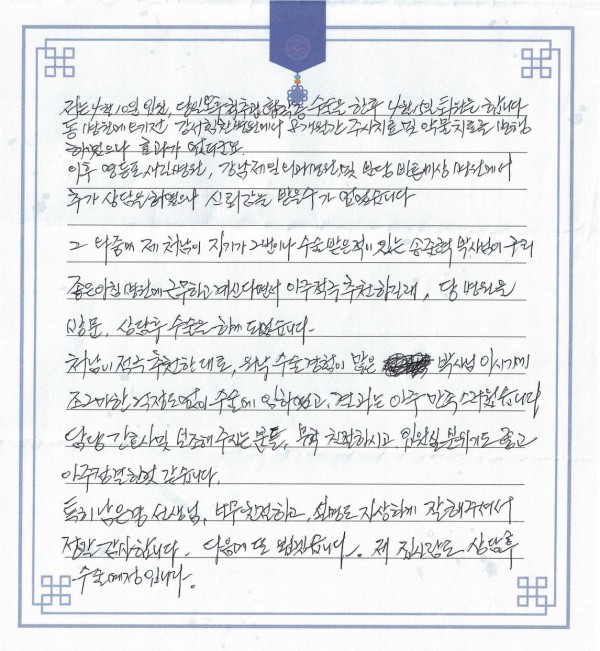 저는 4월 10일 입원, 당일 오후 척추협착증 수술을 한후 4월 15일 퇴원을 합니다
동 병원에 오기전 강서힘찬병원에서 8개월간 주사치료 및 약물치료를 병행
하였으나 효과가 없더군요.
이후 영등포 새길병원, 강남제일외과병원 및 분당 바른세상 병원에서
추가 상담을 하였으나 신뢰감을 받을수가 없었습니다
그 와중에 제 처남이 자기가 2번이나 수술 받은적이 있는 송준혁 박사님이 구리
좋은아침 병원에 근무하고 계신다면서 아주적극 추천하길래, 당 병원을
방문, 상담후 수술을 하게 되었습니다.
처남이 적극 추천한 대로, 워낙 수술경험이 많은 박사님 이시기에
조그마한 걱정도 없이 수술에 임하였고, 결과는 아주 만족스러웠습니다
담당 간호사 및 보조해 주시는 분들, 무척 친절하시고 입원실 분위기도 좋고
아주 청결한것 같습니다.
특히 선생님, 너무친절하고, 설명도 자상하게 잘해주셔서
정말 감사합니다. 다음에 또 뵙겠습니다. 제 집사람도 상담후
수술예정입니다.